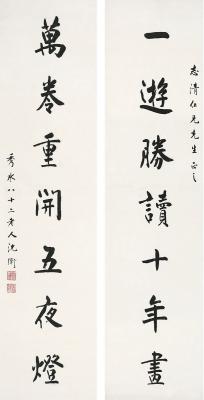 一遊勝讀十年書
志清仁兄先生正之
萬卷重開五夜燈
秀水八十二老人沈衛